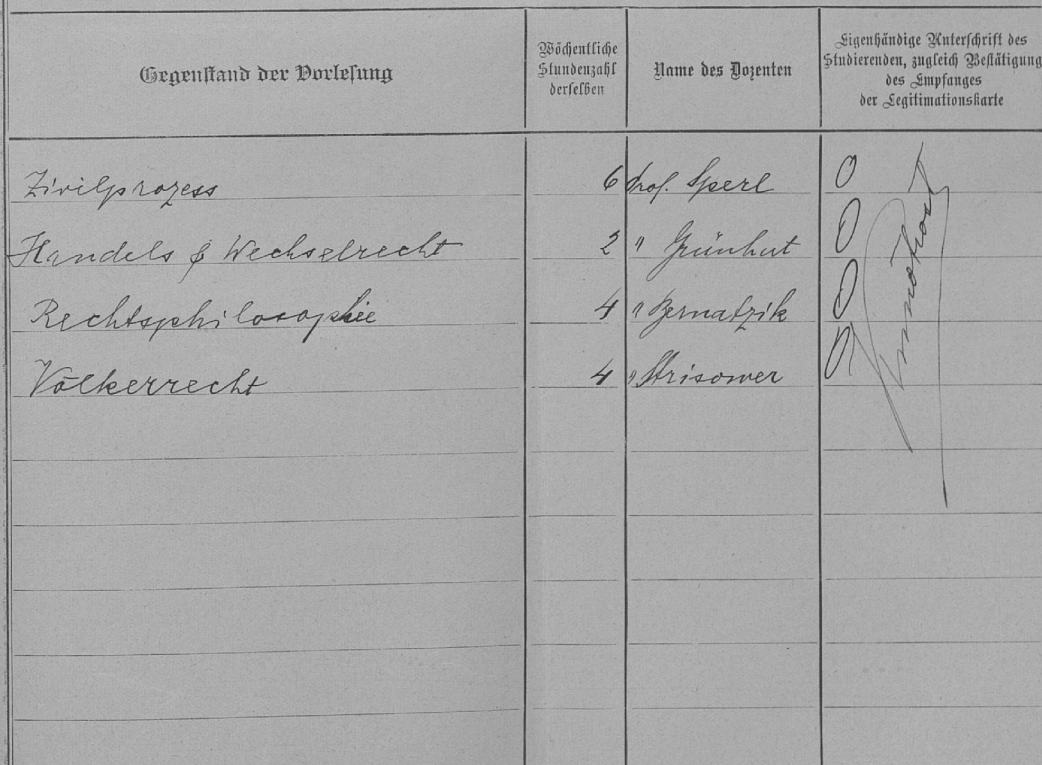 Gegenstand der Vorlesung
Wöchentliche
Stundenzahl
derselben
Name des Dozenten
Eigenhändige Unterschrift des
Studierenden, zugleich Bestätigung
des Empfanges
der Legitimationskarte
Zivilprozess 6 Prof. Sperl 0
Handels & Wechselrecht 2 " Grünhut 0
Rechtsphilosophie 4 " Bernatzik 0
Völkerrecht 4 " Strisower 0